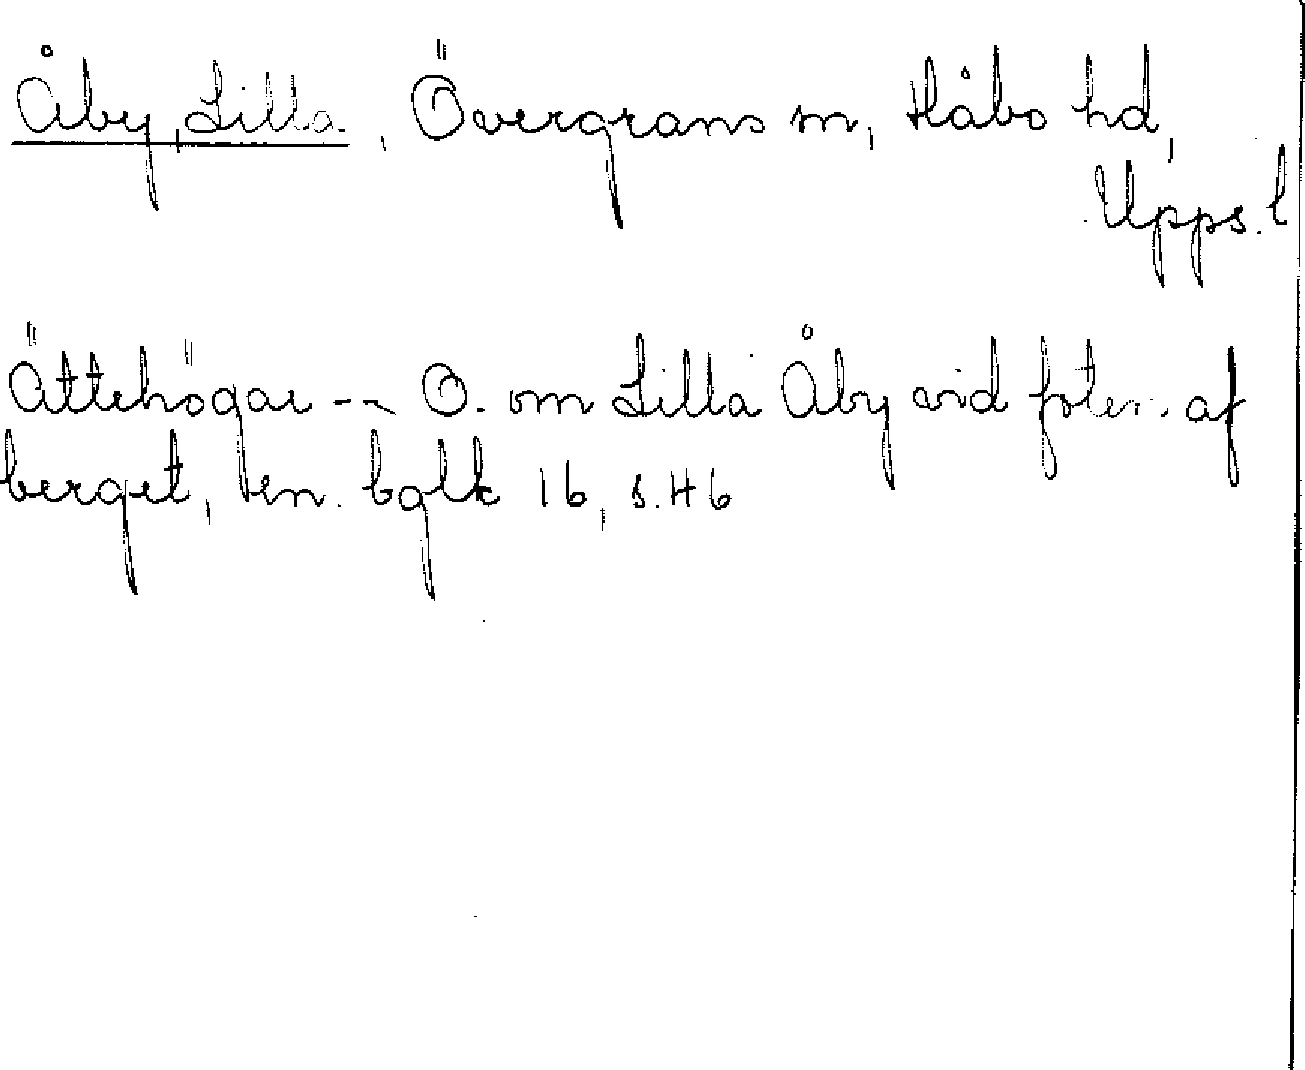 Åby, Lilla, Övergrans sn, Håbo hd,
Upps. l
Ättehögar -- O. om Lilla Åby vid foten af
berget, en. bglk 16, s. 46